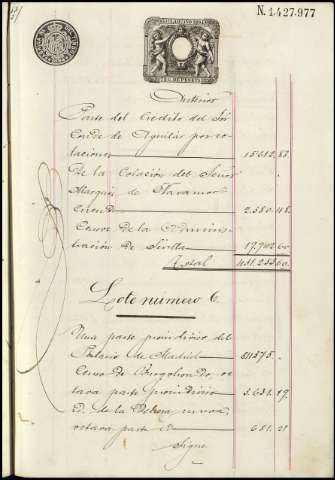 N. 1.427.977
Anterior
Parte del Crédito del Sr
Conde de Aguilar por co-
laciones 15.612,83.
De la Colación del Señor
Marqués de
2.380,48.
Censos de la Adminis-
tración de Sevilla 17.902,60
Total
Lote número 6.
Una parte proindiviso del
Palacio de Madrid 84.375.
Censo de oc-
tava parte proindiviso 3.631,19.
Id. de la Dehesa
octava parte id 681,21
Sigue